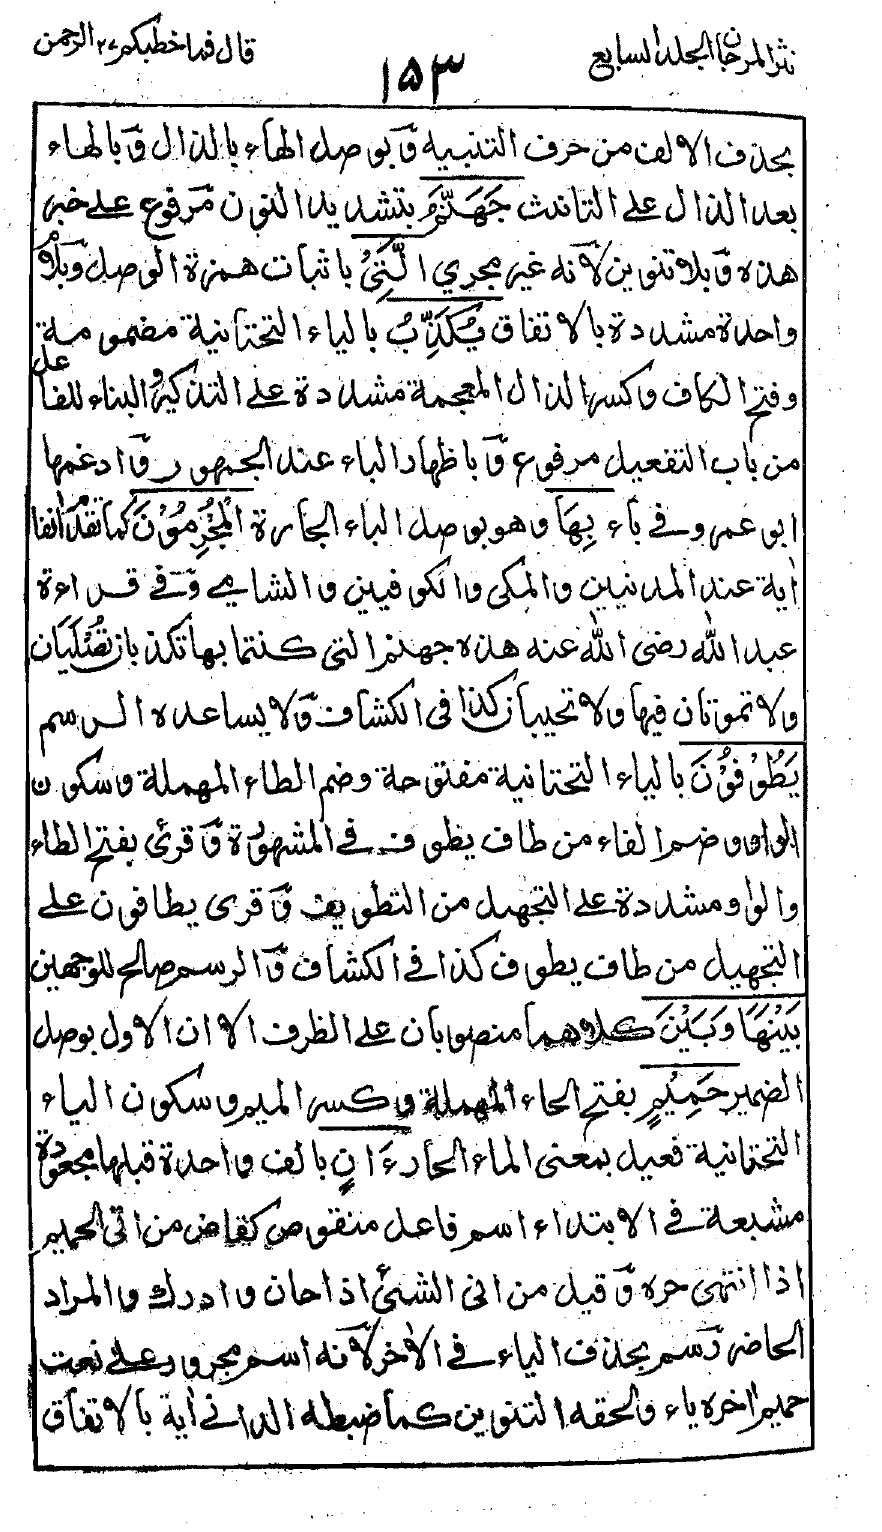 نثر المرجان الجلد السابع
١٥٣
قال فما خطبكم ٢٧ الرحمن
بحذف الالف من حرف التنبيه وَبوصل الهاء بالذال وَبالهاء
بعد الذال على التانيث جَهَنَّمُ بتشديد النون مرفوع على خبر
هذه وَبلا تنوين لأنه غير مجري الَّتِيْ باثبات همزة الوصل وَبلام
واحدة مشددة بالاتفاق يُكَذِّبُ بالياء التحتانية مضمومة
وفتح الكاف وكسر الذال المعجمة مشددة على التذكير والبناء للفاعل
من باب التفعيل مرفوع وَباظهار الباء عند الجمهور وَادغمها
ابو عمرو في باء بِهَا وهو بوصل الباء الجارة الْمُجْرِمُوْنَ كما تقدم انفا
اٰية عند المدنيين والمكي والكوفيين والشامي وَفي قراءة
عبد الله رضى الله عنه هذه جهنم التي كنتما بها تكذبان تصليان
ولا تموتان فيها ولا تحييان كذا في الكشاف وَلا يساعده الرسم
يَطُوْفُوْنَ بالياء التحتانية مفتوحة وضم الطاء المهملة وسكون
الواو وضم الفاء من طاف يطوف في المشهورة وَقرئ بفتح الطاء
والواو مشددة على التجهيل من التطويف وَقرى يطافون على
التجهيل من طاف يطوف كذا في الكشاف وَالرسم صالح للوجهين
بَيْنَهَا وَبَيْنَ كلاهما منصوبان على الظرف الا ان الاول بوصل
الضمير حَمِيْمٍ بفتح الحاء المهملة وكسر الميم وسكون الياء
التحتانية فعيل بمعنى الماء الحار ءَانٍ بالف واحدة قبلها مجعودة
مشبعة في الابتداء اسم فاعل منقوص كقاض من انى الحميم
اذا انتهى حره وَقيل من انى الشئ اذا حان وادرك والمراد
الحاضر رَسم بحذف الياء في الاٰخر لأنه اسم مجرور على نعت
حميم اٰخره ياء والحقه التنوين كما ضبطه الداني اٰية بالاتفاق